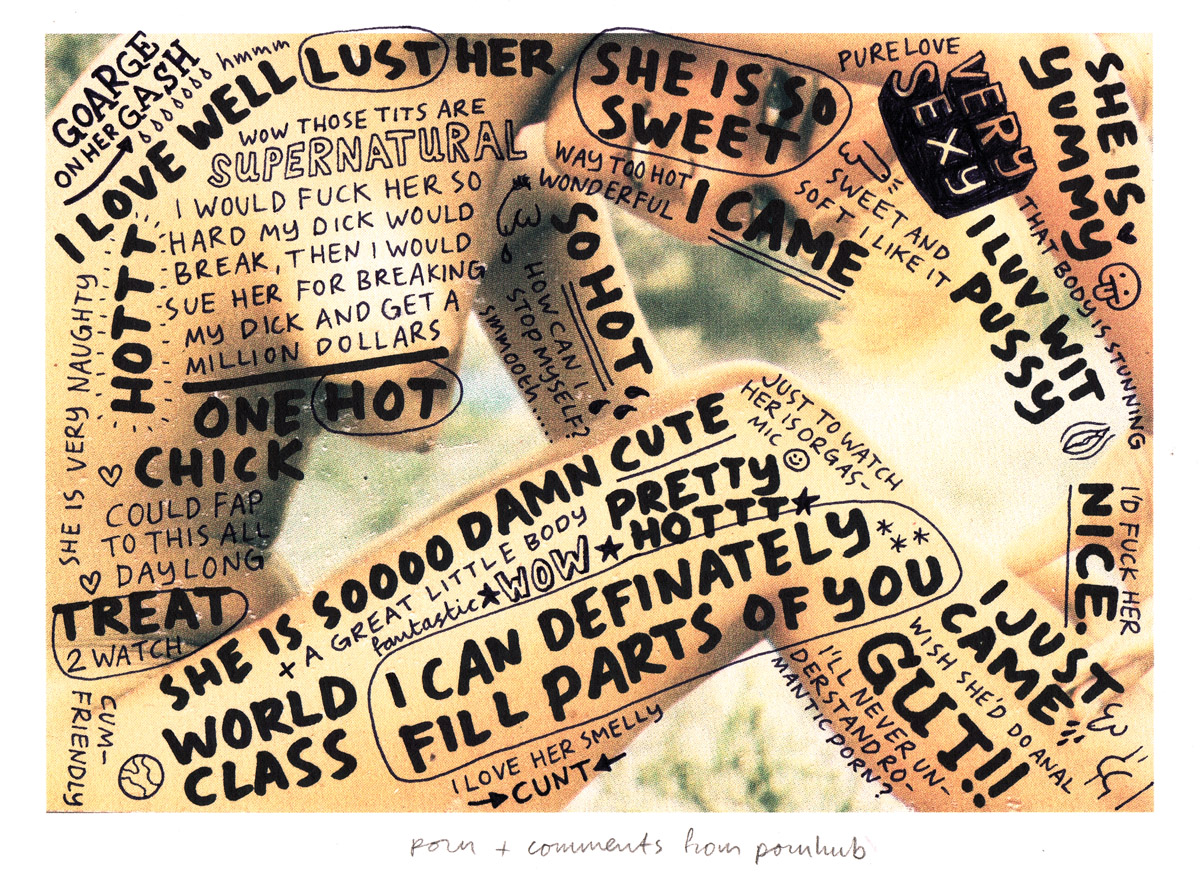 GOARGE
ON HER GASH
hmmm
I LOVE WELL LUST HER
WOW THOSE TITS ARE
SUPERNATURAL
I WOULD FUCK HER SO
HARD MY DICK WOULD
BREAK, THEN I WOULD
SUE HER FOR BREAKING
MY DICK AND GET A
MILLION DOLLARS
HOTTT
SHE IS VERY NAUGHTY
ONE HOT
CHICK
COULD FAP
TO THIS ALL
DAY LONG
TREAT
2 WATCH
CUM-
FRIENDLY
SHE IS SO
SWEET
WAY TOO HOT
WONDERFUL
I CAME
SO HOT
HOW CAN I
STOP MYSELF?
smmooth...
PURE LOVE
VERY
SEXY
SWEET AND
SOFT I LIKE IT
SHE IS
YUMMY
THAT BODY IS STUNNING
I LUV WIT
PUSSY
JUST TO WATCH
HER IS ORGAS-
MIC
SHE IS SOOOO DAMN CUTE
+ A GREAT LITTLE BODY
PRETTY
HOTTT
fantastic WOW
WORLD
CLASS
I CAN DEFINATELY
FILL PARTS OF YOU
I LOVE HER SMELLY
CUNT
NICE.
I'D FUCK HER
I JUST
CAME
WISH SHE'D DO ANAL
GUT!!
I'LL NEVER UN-
DERSTAND RO-
MANTIC PORN?
porn + comments from pornhub